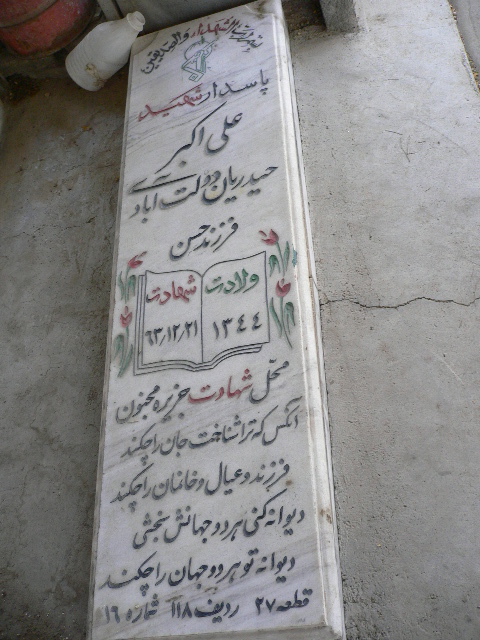 بنام رب الشهداء والصدیقین
پاسدار شهید
علی اکبر
حیدریان دولت آبادی
فرزند حسن
ولادت
۱۳۴۴
شهادت
۶۳٫۱۲٫۲۱
محل شهادت جزیره مجنون
آنکس که ترا شناخت جان را چکند
فرزند و عیال و خانمان را چکند
دیوانه کنی هر دو جهانش بخشی
دیوانه تو هر دو جهان را چکند
قطعه ۲۷ ردیف ۱۱۸ شماره ۱۶